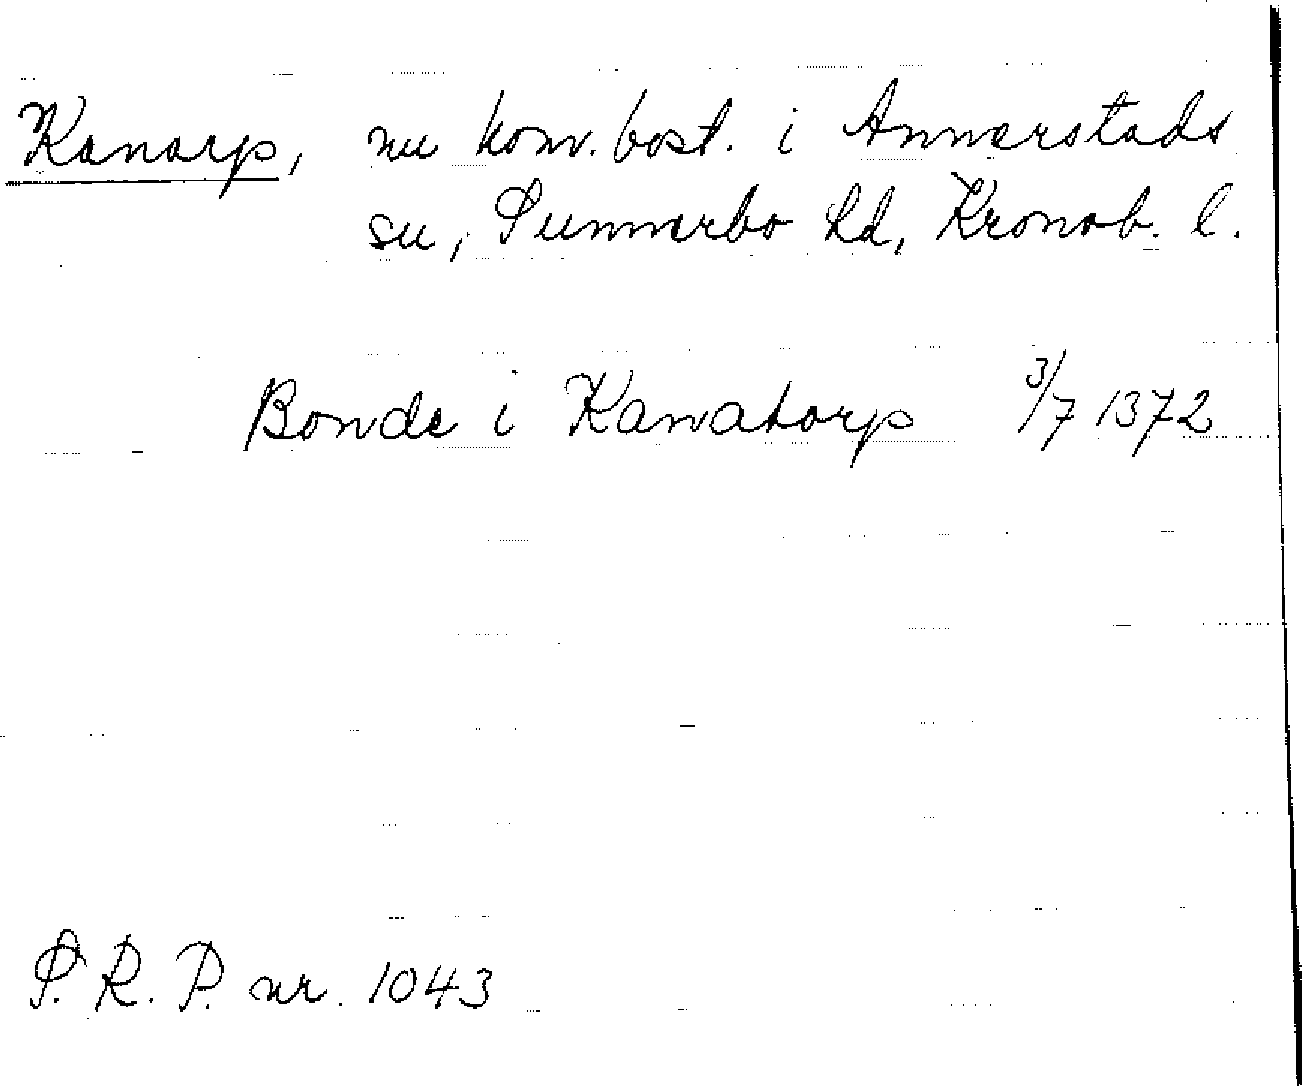 Kanarp, nu komv. bost. i Annerstads
su, Sunnerbo hd, Kronob. l.
Bonde i Kanatorp 3/7 1372
S. R. P. nr. 1043